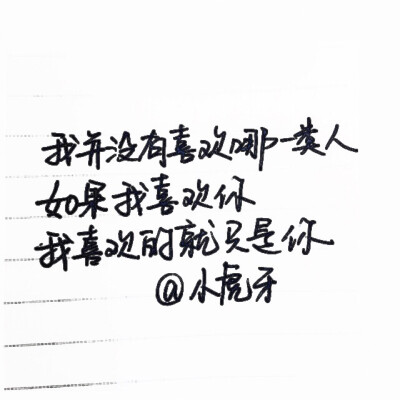 我并没有喜欢哪一类人
如果我喜欢你
我喜欢的就只是你
@小虎牙